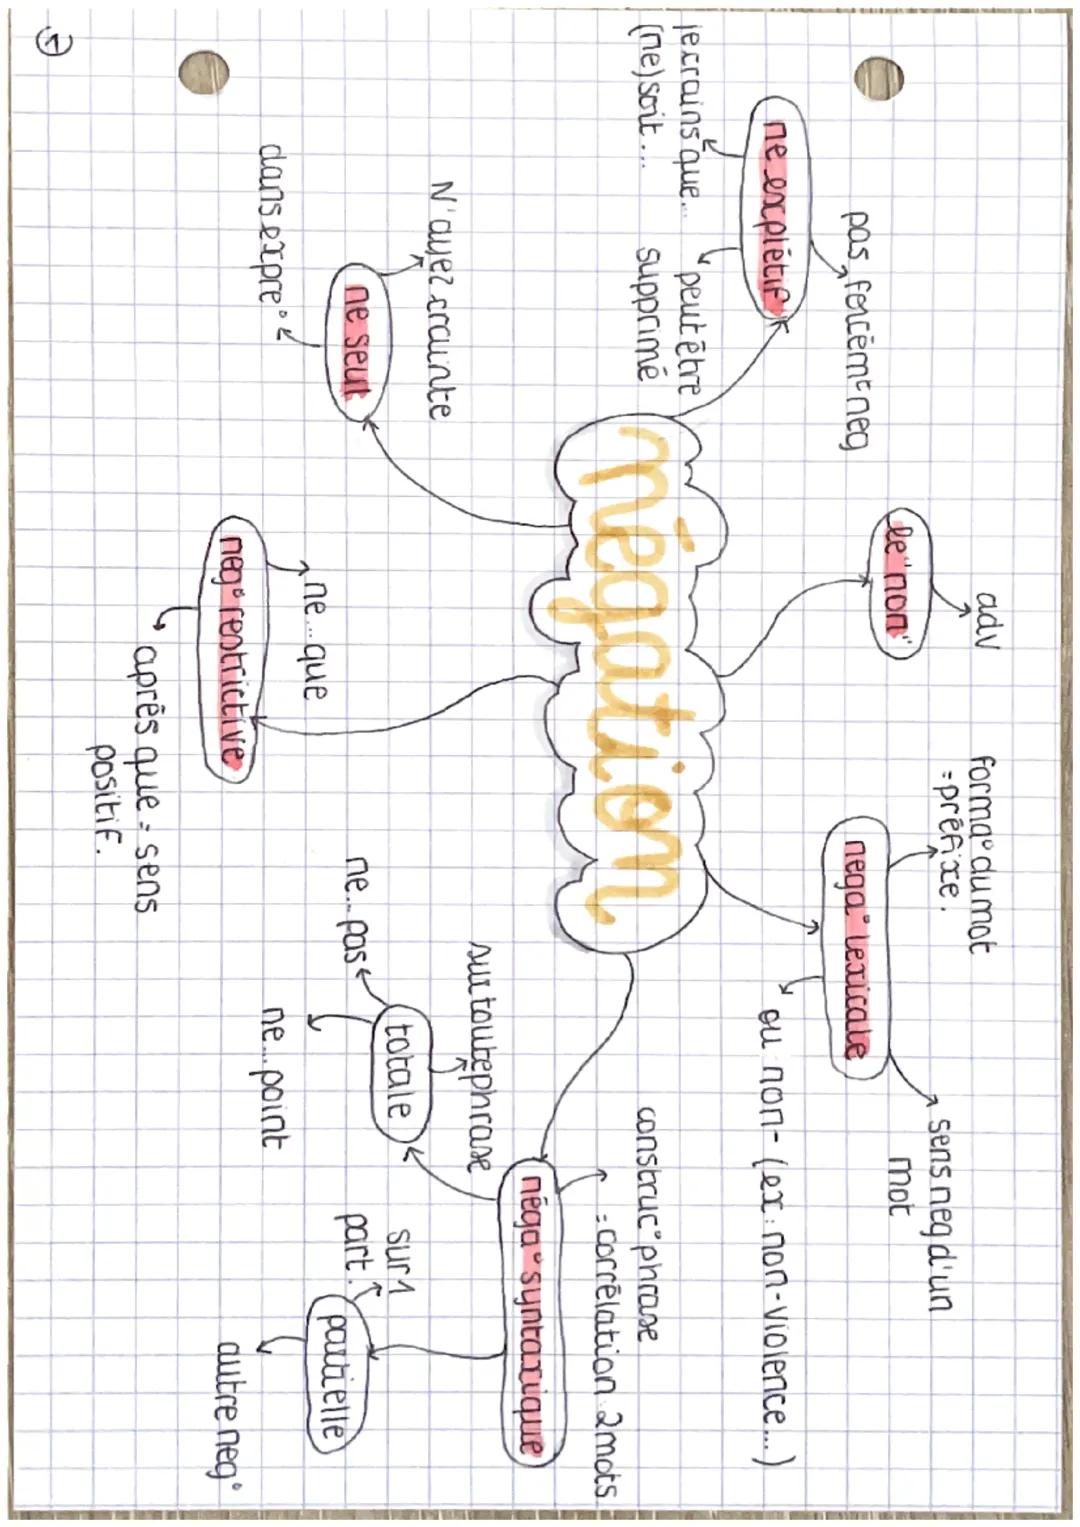 négation
ne explétif
pas forcémt neg
je crains que...
(ne) soit...
peut être
supprimé
le "non"
adv
nega° lexicale
forma° du mot
= préfixe.
sens neg d'un
mot
ou non- (ex : non-violence...)
néga° syntaxique
construc° phrase
= corrélation 2 mots.
totale
sur toute phrase
ne... pas
ne... point
partielle
sur 1
part.
autre neg°
neg° restrictive
ne... que
après que = sens
positif.
ne seul
N'ayez crainte
dans expre°